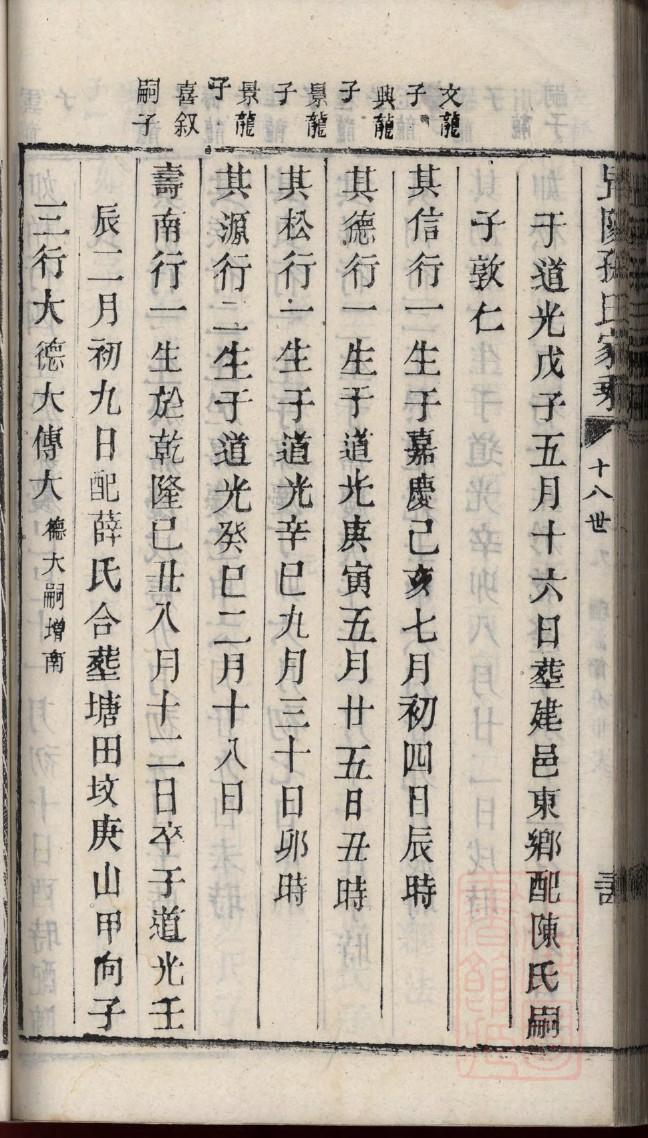 孫氏家乘
十八世
于道光戊子五月十六日塟建邑東鄉配陳氏嗣
子敦仁
文龍子
其信行一生于嘉慶己亥七月初四日辰時
典龍子
其德行一生于道光庚寅五月廿五日丑時
景龍子
其松行一生于道光辛巳九月三十日卯時
景龍子
其源行二生于道光癸巳二月十八日
喜叙嗣子
壽南行一生於乾隆己丑八月十二日卒于道光壬
辰二月初九日配薛氏合塟塘田坟庚山甲向子
三行大德大傳大 德大嗣增南